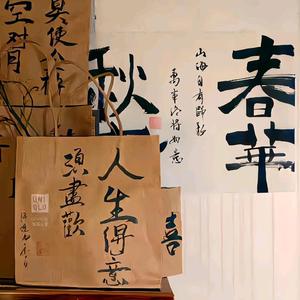 春華
秋
山海自有歸期
萬事終將如意
莫使金樽
空對
人生得意
須盡歡
UNI
QLO
喜